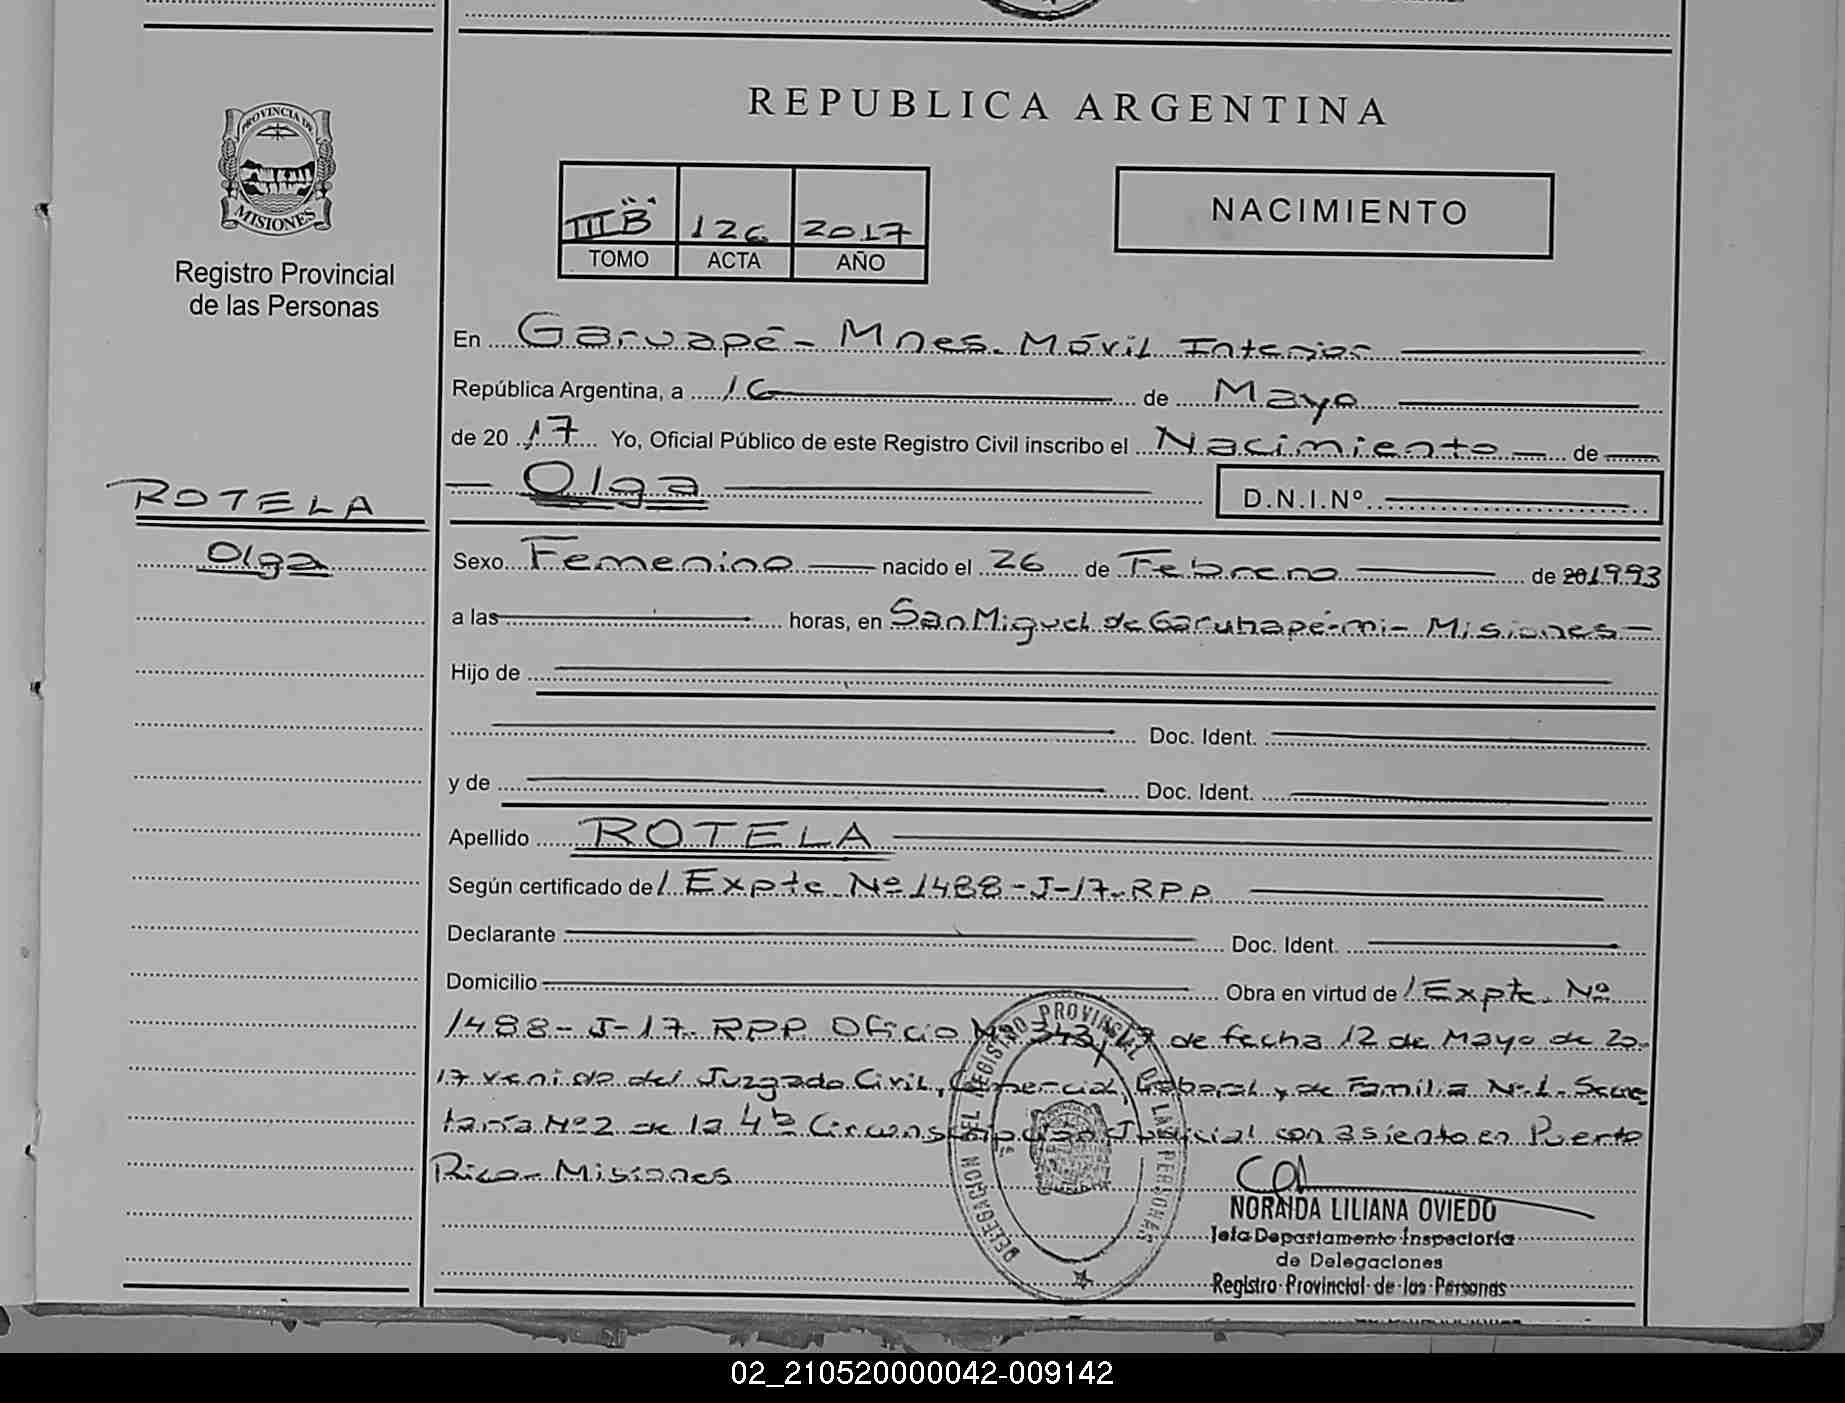 REPUBLICA ARGENTINA
PROVINCIA DE
MISIONES
Registro Provincial
de las Personas
III "B" 126 2017
TOMO ACTA AÑO
NACIMIENTO
En Garuapé - Mnes. Móvil Interior
República Argentina, a 16 de Mayo
de 20 17 Yo, Oficial Público de este Registro Civil inscribo el Nacimiento de
Olga D.N.I.Nº
ROTELA
Olga
Sexo Femenino nacido el 26 de Febrero de 20 1993
a las horas, en San Miguel de Garuhapé-mi - Misiones -
Hijo de
Doc. Ident.
y de Doc. Ident.
Apellido ROTELA
Según certificado de / Expte Nº 1488 - J - 17 - RPP
Declarante Doc. Ident.
Domicilio Obra en virtud de / Expte. Nº
1488 - J - 17 - RPP Oficio Nº 343/17 de fecha 12 de Mayo de 20
17 venido del Juzgado Civil, Comercial, Laboral y de Familia Nº 1 - Secre
taría Nº 2 de la 4ª Circunscripción Judicial con asiento en Puerto
Rico - Misiones
DELEGACION DEL REGISTRO PROVINCIAL DE LAS PERSONAS
NORAIDA LILIANA OVIEDO
Jefa Departamento Inspectoría
de Delegaciones
Registro Provincial de las Personas
02_210520000042-009142